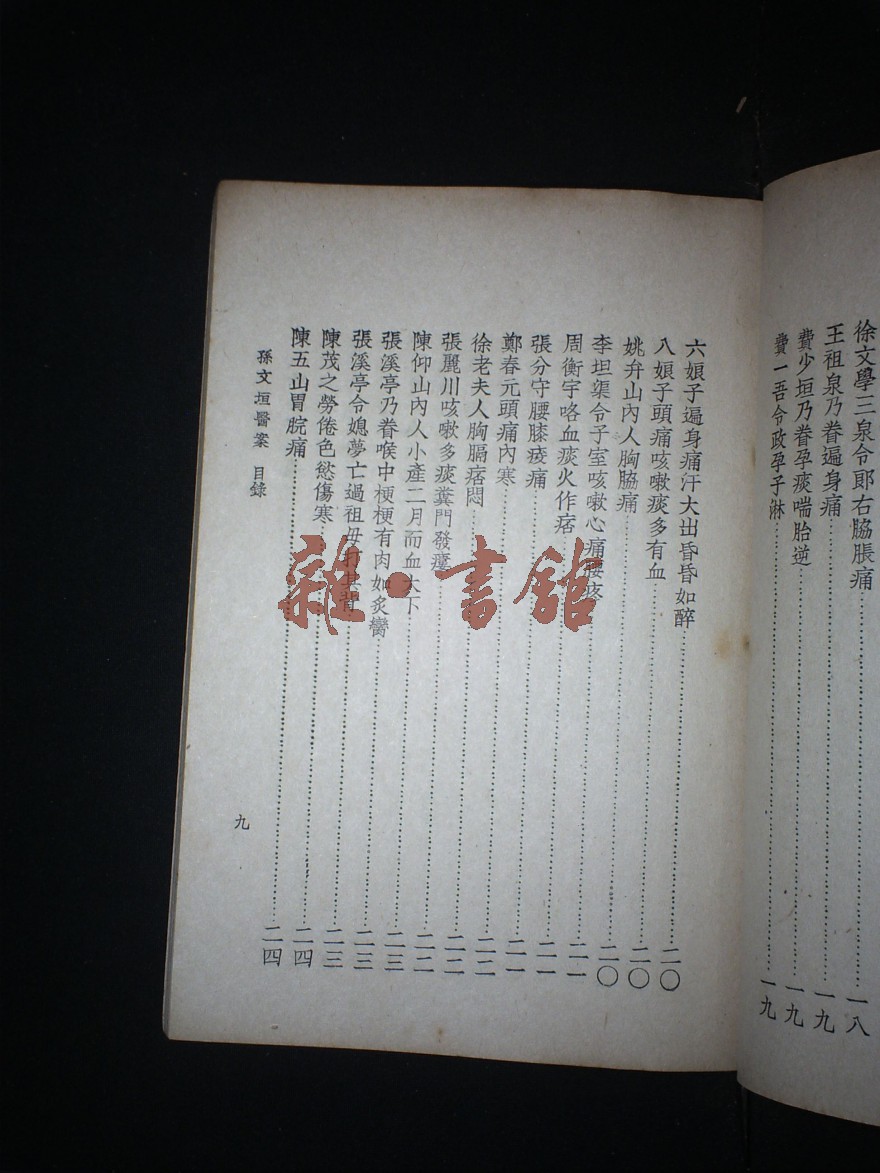 徐文學三泉令郎右脇脹痛……一八
王祖泉乃眷遍身痛……一九
費少垣乃眷孕痰喘胎逆……一九
費一吾令政孕子淋……一九
六娘子遍身痛汗大出昏昏如醉……二〇
八娘子頭痛咳嗽痰多有血……二〇
姚弁山內人胸脇痛……二〇
李坦渠令子室咳嗽心痛腰疼……二一
周衡宇咯血痰火作痞……二一
張分守腰膝痠痛……二一
鄭春元頭痛內寒……二二
徐老夫人胸膈痞悶……二二
張麗川咳嗽多痰糞門發癢……二二
陳仰山內人小產二月而血大下……二三
張溪亭乃眷喉中梗梗有肉如炙臠……二三
張溪亭令媳夢亡過祖母打其背……二三
陳茂之勞倦色慾傷寒……二四
陳五山胃脘痛……二四
孫文垣醫案 目錄
九
雜·書館